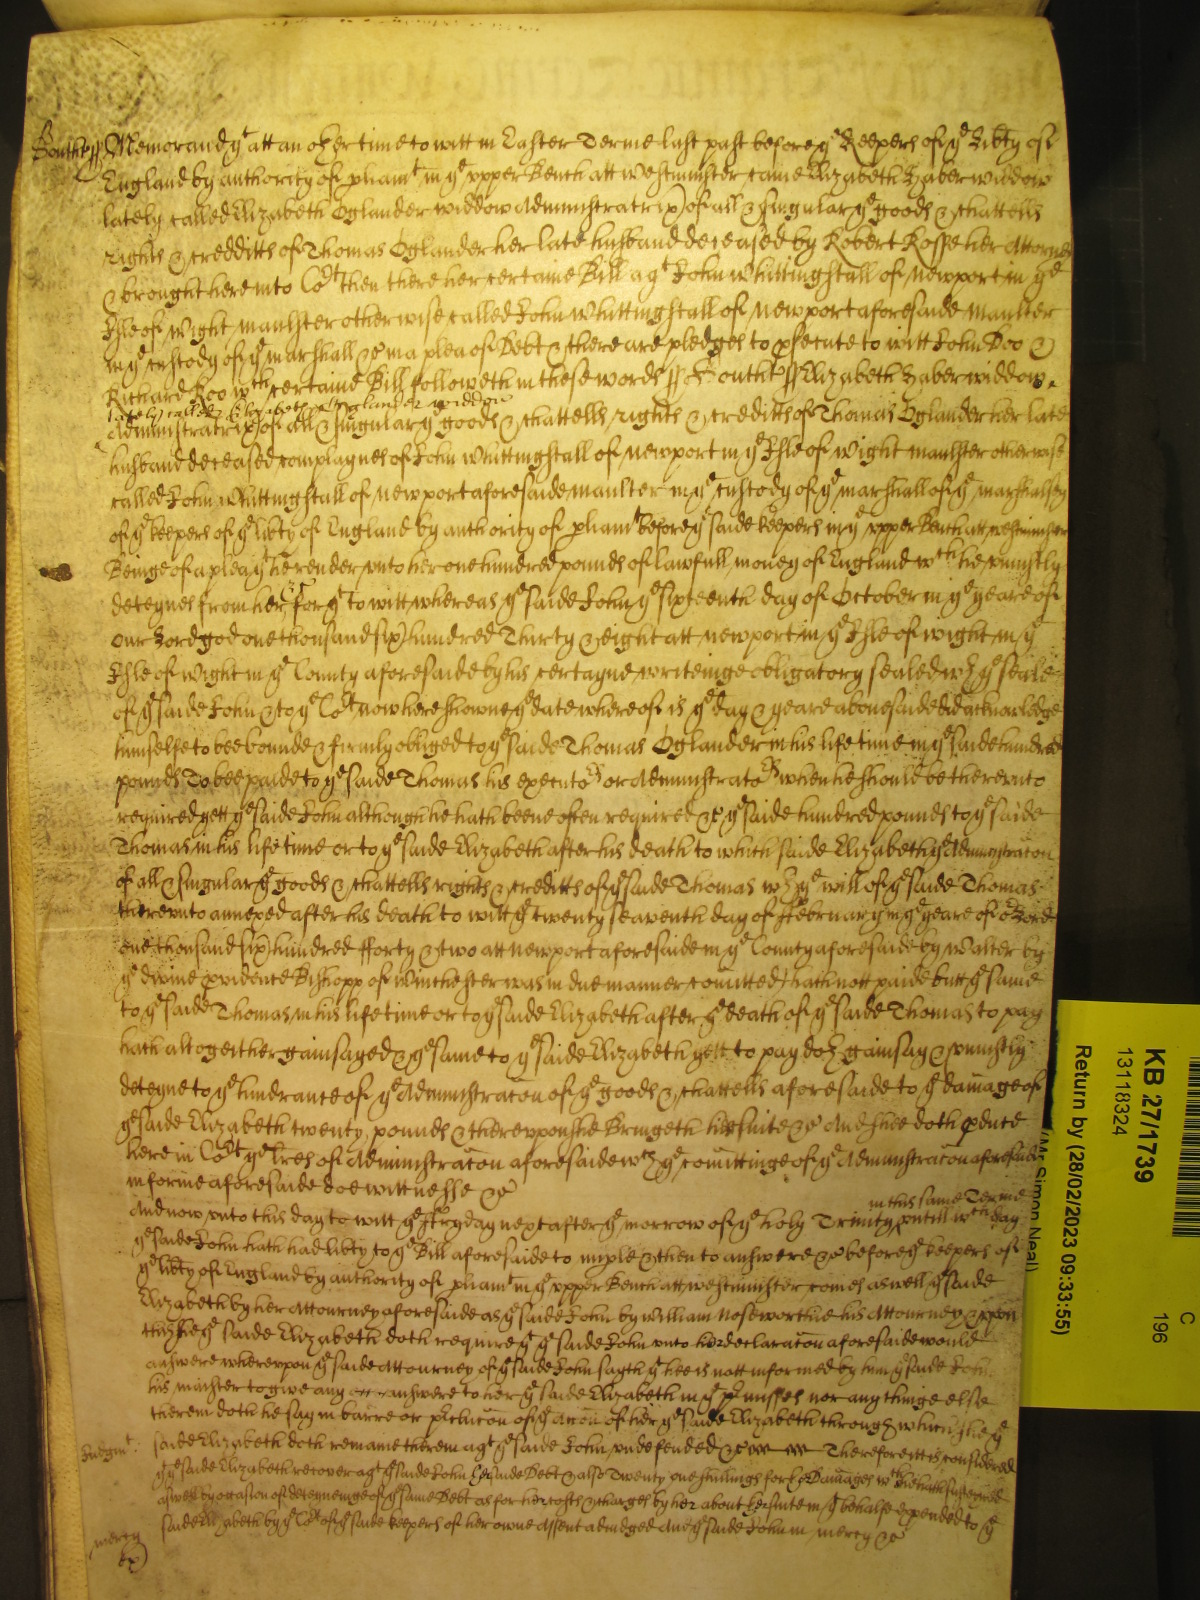 Southt ss Memorand yt att an other time to witt in Easter Terme last past before ye Keepers of ye Libty of
England by authority of pliamt in ye upper Bench att Westminster came Elizabeth Zaber widdow
lately called Elizabeth Oglander widdow Administratrix of all & singular ye goods & chattells
rights & creditts of Thomas Oglander her late husband deceased by Robert Rosse her Attorney
& brought here into Cort then there her certaine Bill agt John Whittingstall of Newport in ye
Isle of Wight maulster otherwise called John Whittingstall of Newport aforesaide maulter
in ye custody of ye marshall &c in a plea of Debt & there are pledges to psecute to witt John Doo &
Richard Roo wch certaine Bill followeth in these words ss Southt ss Elizabeth Zaber widdow
lately called Elizabeth Oglander widdow
Administratrix of all & singular ye goods & chattells rights & creditts of Thomas Oglander her late
husband deceased complaynes of John Whittingstall of Newport in ye Isle of Wight maulster otherwise
called John Whittingstall of Newport aforesaide maulter in ye custody of ye marshall of ye marshallsey
of ye keepers of ye libty of England by authority of pliamt before ye saide keepers in ye upper Bench att westminster
Beinge of a plea yt he render unto her one hundred pounds of lawfull money of England wch he uniustly
deteynes from her for yt to witt whereas ye saide John ye sixteenth day of October in ye yeare of
our Lord god one thousand six hundred Thirty & eight att Newport in ye Isle of wight in ye
Isle of Wight in ye County aforesaide by his certayne writeinge obligatory sealed wth ye seale
of ye saide John & to ye Cort now here showne ye date whereof is ye day & yeare abovesaide did acknowledge
himselfe to bee bounde & firmly obliged to ye saide Thomas Oglander in his life time in ye saide hundred
pounds To bee paide to ye saide Thomas his executors or Administrators when he should be thereunto
required yett ye saide John although he hath beene often required &c ye saide hundred pounds to ye saide
Thomas in his life time or to ye saide Elizabeth after his death to which saide Elizabeth ye Administracon
of all & singular ye goods & chattells rights & creditts of ye saide Thomas wth ye will of ye saide Thomas
thereunto annexed after his death to witt ye twenty seaventh day of ffebruary in ye yeare of or Lord
one thousand six hundred fforty & two att Newport aforesaide in ye County aforesaide by Walter by
ye divine pvidence Bishopp of Winchester was in due manner comitted hath nott paide butt ye same
to ye saide Thomas in his life time or to ye saide Elizabeth after ye death of ye saide Thomas to pay
hath altogeither gainsayed & ye same to ye saide Elizabeth yett to pay doth gainsay & uniustly
deteyne to ye hindrance of ye Administracon of ye goods & chattells aforesaide to ye damage of
ye saide Elizabeth twenty pounds & thereuppon she Bringeth her suite &c And shee doth pduce
here in Cort ye lres of Administracon aforesaide wch ye comittinge of ye Administracon aforesaide
in forme aforesaide doe wittnesse &c
in this same Terme
And now unto this day to witt ye ffryday next after ye morrow of ye holy Trinity untill wch day
ye saide John hath had libty to ye Bill aforesaide to imple & then to answere &c before ye keepers of
ye libty of England by authority of pliamt in ye upper Bench att westminster comes aswell ye saide
Elizabeth by her Attourney aforesaide as ye saide John by William Noseworthie his Attourney & uppon
this ye saide Elizabeth doth require yt ye saide John unto her declaracon aforesaide would
answere whereupon ye saide Attourney of ye saide John sayth yt hee is nott informed by him ye saide John
his master to give any answere to her ye saide Elizabeth in ye pmisses nor any thinge else
therein doth he say in barre or pclucon of ye accon of her ye saide Elizabeth through which she ye
saide Elizabeth doth remaine therein agt ye saide John undefended &c Therefore itt is considered
Judgmt
yt ye saide Elizabeth recover agt ye saide John her saide Debt & also Twenty one shillings for her Damages wch she hath susteyned
aswell by occasion of deteyneinge of ye same Debt as for her costs & charges by her about her suite in yt behalfe expended to ye
saide Elizabeth by ye Cort of ye saide keepers of her owne Assent adiudged And ye saide John in mercy &c
mercy
ex
KB 27/1739
13118324
Return by (28/02/2023 09:33:55)
(Mr Simon Neal)
C
196